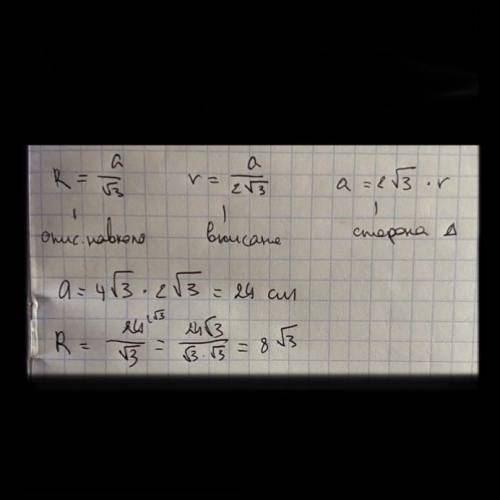 R = a/√3 r = a/2√3 a = 2√3 · r
опис. навколо вписане сторона Δ
a = 4√3 · 2√3 = 24 см
R = 24^(√3/√3 = 24√3/√3·√3 = 8√3